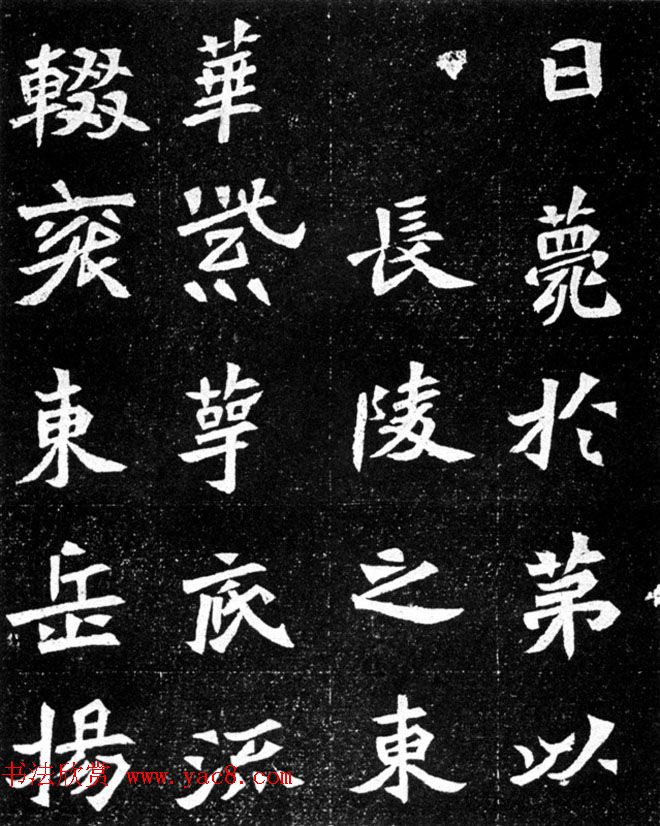 日薨於第以
長陵之東
華紫底
輟爽東岳揚
书法欣赏 www.yac8.com